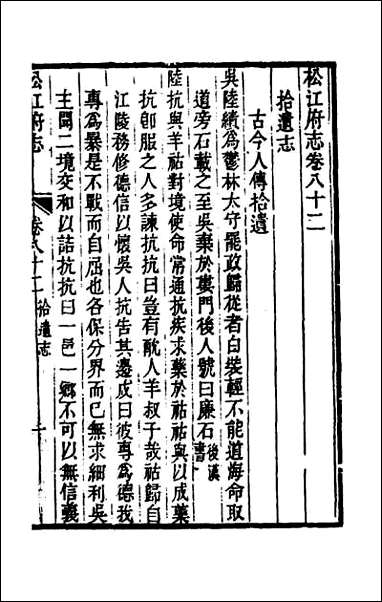 松江府志卷八十二
拾遺志
古今人傳拾遺
吳陸績爲鬱林太守罷政歸從者白裝輕不能道海命取
道旁石載之至吳棄於婁門後人號曰廉石後漢書
陸抗與羊祜對境使命常通抗疾求藥於祜祜與以成藥
抗卽服之人多諫抗抗曰豈有酖人羊叔子哉祜歸自
江陵務修德信以懷吳人抗告其邊戍曰彼專爲德我
專爲暴是不戰而自屈也各保分界而已無求細利吳
主聞二境交和以詰抗抗曰一邑一鄉不可以無信義
松江府志
卷八十二 拾遺志
一